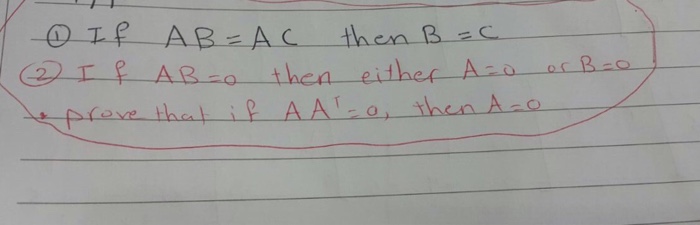 ① If AB = AC then B = C
② If AB=0 then either A=0 or B=0
prove that if AAᵀ=0, then A=0